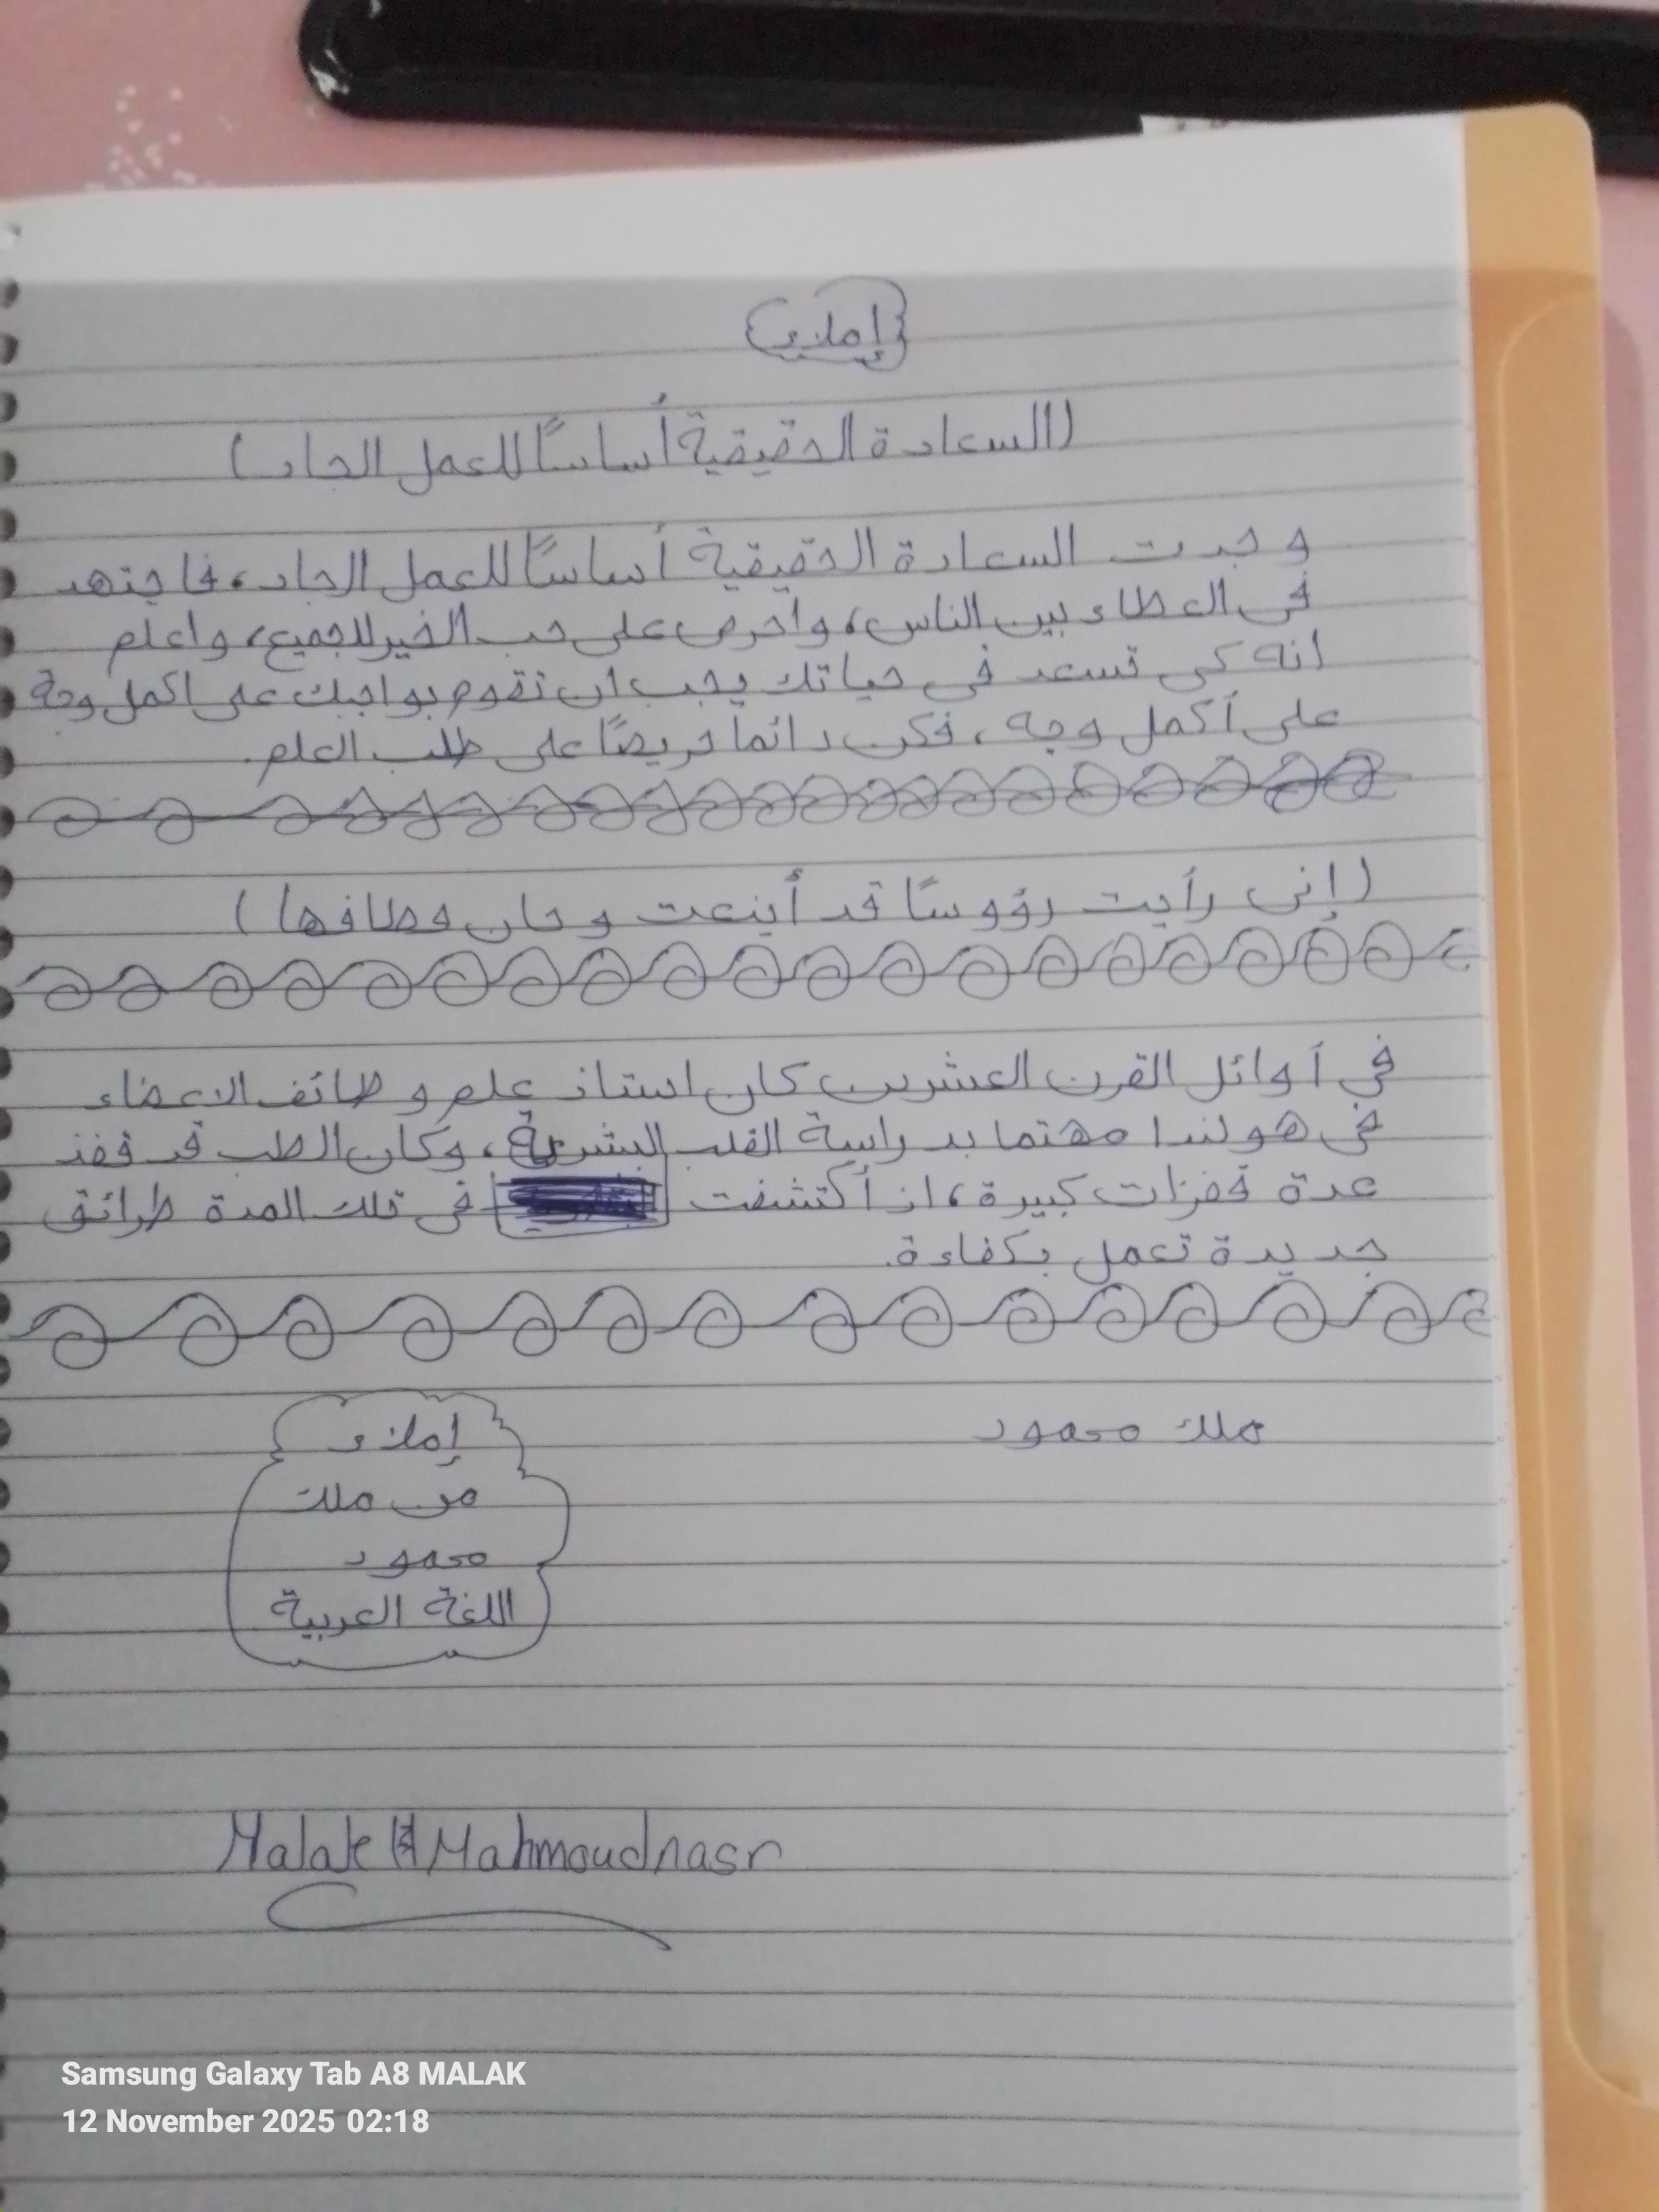 إملاء
(السعادة الحقيقية أساسًا للعمل الجاد)
وجدت السعادة الحقيقية أساسًا للعمل الجاد، فاجتهد
فى العطاء بين الناس، واحرص على حب الخير للجميع، واعلم
انه كى تسعد فى حياتك يجب ان تقوم بواجبك على اكمل وجة
على أكمل وجه، فكن دائما حريصًا على طلب العلم.
(إنى رأيت رؤوسًا قد أينعت وحان وطافها)
في أوائل القرن العشرين كان استاذ علم وظائف الاعضاء
فى هولندا مهتما بدراسة القلب البشرية، وكان الطب قد قفذ
عدة قفزات كبيرة، اذ أكتشفت فى تلك المدة طرائق
جديدة تعمل بكفاءة.
ملك محمود
إملاء
من ملك
محمود
اللغة العربية
Malak Mahmoud nasr
Samsung Galaxy Tab A8 MALAK
12 November 2025 02:18